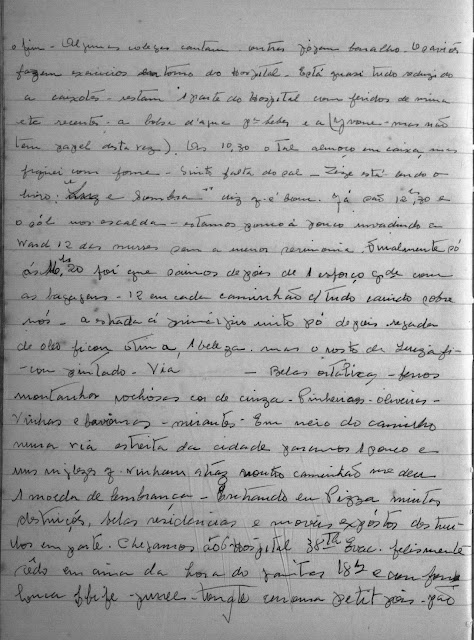 o fim - Algumas colegas cantam - outras jogam baralho - Os aviões
fazem exercicios em torno do Hospital - Está quasi tudo reduzido
a caixotes - restam 1 parte do Hospital com feridos de mina
etc recentes. a bolsa d'agua pª beber e a (Yvone - mas não
tem papel desta vez). As 10,30 o tal almoço em caixa, mas
fiquei com fome - Sinto falta do sal - está lendo o
livro: e Sombra" diz q. é bom. Já são 12,30 e
o sól nos escalda - estamos pouco á pouco invadindo a
Ward 12 das nurses sem a menor cerimonia. Finalmente só
ás 16,20 foi que saimos depois de 1 esforço gde com
as bagagens - 12 em cada caminhão c/ tudo caindo sobre
nós - a estrada á principio muito pó depois regada
de oleo ficou otima, 1 beleza. mas o rosto da fi-
cou pintado - Via - Belas - ferros
montanhas rochosas cor de cinza - Pinheiros - oliveiras -
Vinhas e - mirantes - Em meio do caminho
numa via estreita da cidade paramos 1 pouco e
uns inglezes q. vinham atrás noutro caminhão me deu
1 moeda de lembrança - Entrando em Pizza muitas
destruições, belas residencias e moveis expóstos destrui-
dos em parte. Chegamos ao Hospital 38th Evac. felismente
cêdo em cima da hora do jantar 18hs e com fome
louca - - tongue com uma petit pois - pão